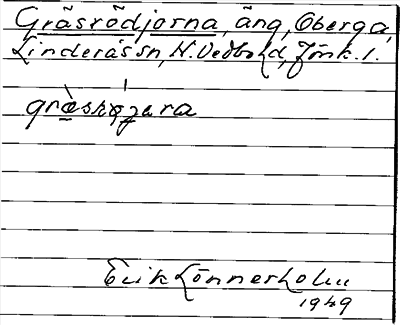 Gräsrödjorna, äng, Oberga,
Linderås sn, N. Vedbo hd, Jönk. l.
Erik Lönnerholm
1949